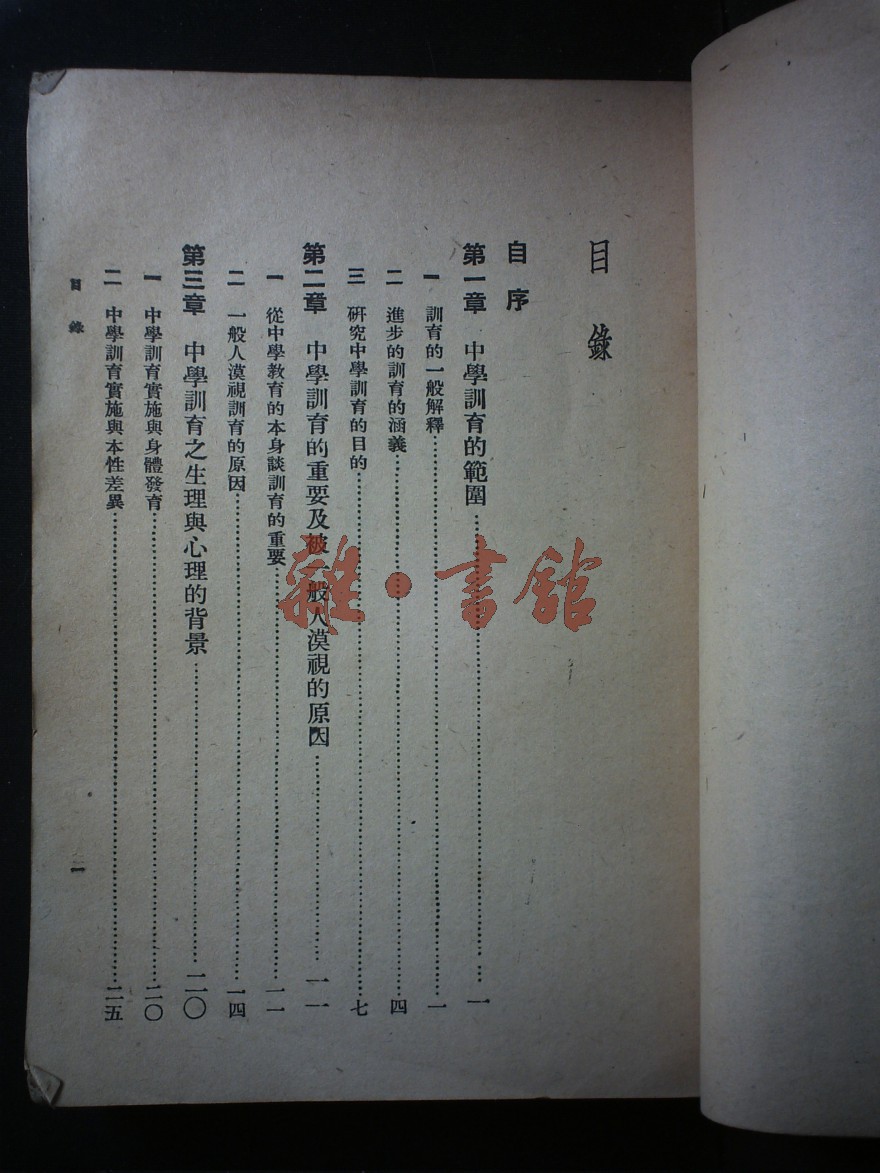 目錄
自序
第一章 中學訓育的範圍…………一
一 訓育的一般解釋…………一
二 進步的訓育的涵義…………四
三 研究中學訓育的目的…………七
第二章 中學訓育的重要及被一般人漠視的原因…………一一
一 從中學教育的本身談訓育的重要…………一一
二 一般人漠視訓育的原因…………一四
第三章 中學訓育之生理與心理的背景…………二〇
一 中學訓育實施與身體發育…………二〇
二 中學訓育實施與本性差異…………二五
目錄
一
雜·書館